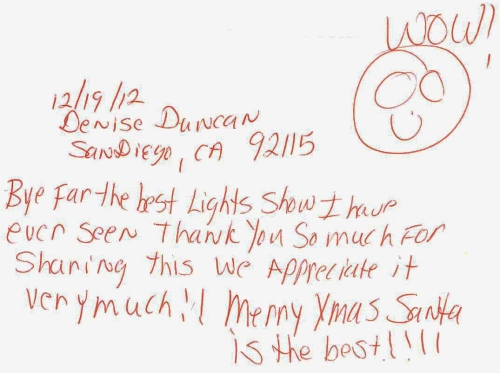 WOW!
12/19/12
Denise Duncan
San Diego, CA 92115
Bye Far the best Lights Show I have
ever seen Thank You So much For
Sharing this we Appreciate it
very much!! Merry Xmas Santa
is the best!!!!